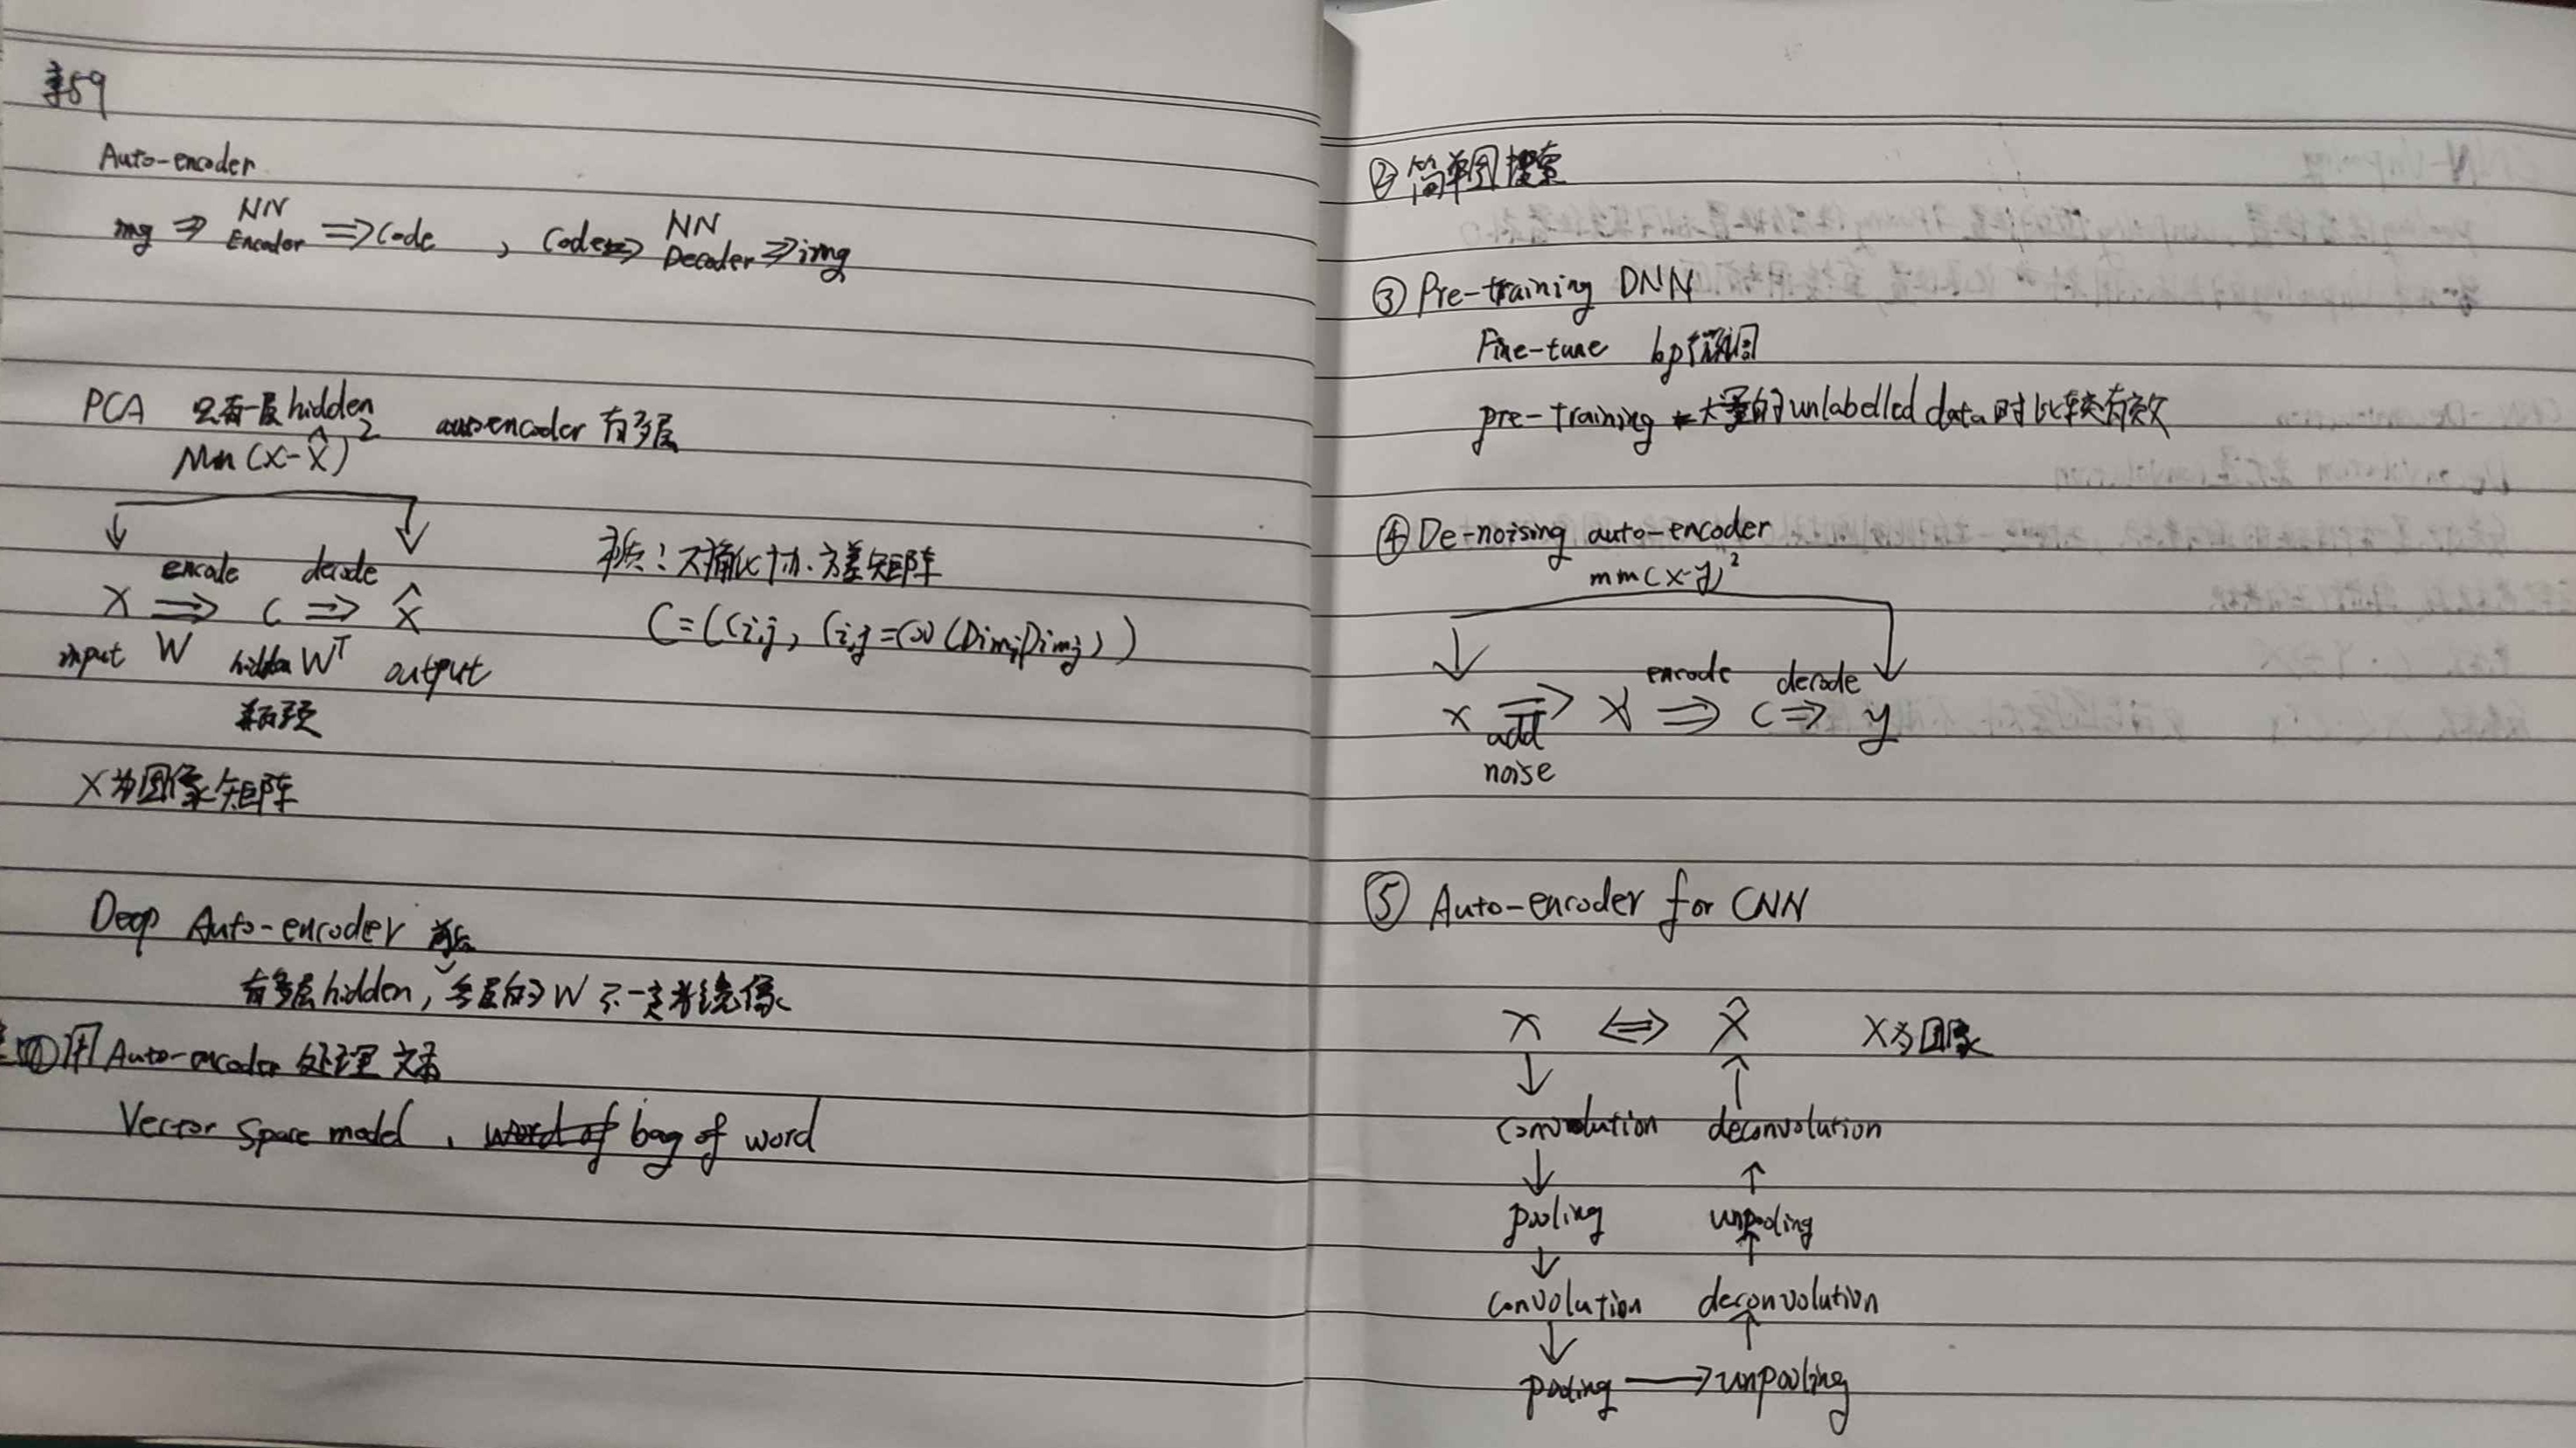 59
Auto-encoder
img ⇒ NN Encoder ⇒ Code , Code ⇒ NN Decoder ⇒ img
PCA 只有一层hidden autoencoder 有多层
Min (x-x̂)²
encode decode
X ⇒ C ⇒ x̂
input W hidden Wᵀ output
瓶颈
本质：对角化协方差矩阵
C=(Ci,j, Ci,j=Cov(Dimi,Dimj))
X为图像矩阵
Deep Auto-encoder
有多层hidden，各层的W不一定为镜像
①用Auto-encoder 处理文本
Vector Space model , word of bag of word
②简单图搜索
③Pre-training DNN
Fine-tune bp微调
pre-training 大量的unlabelled data时比较有效
④De-noising auto-encoder
min(x-y)²
encode decode
x ⇒ x' ⇒ c ⇒ y
add
noise
⑤ Auto-encoder for CNN
x ⇔ x̂ X为图像
↓ ↑
convolution deconvolution
↓ ↑
pooling unpooling
↓ ↑
convolution deconvolution
↓ ↑
pooling → unpooling